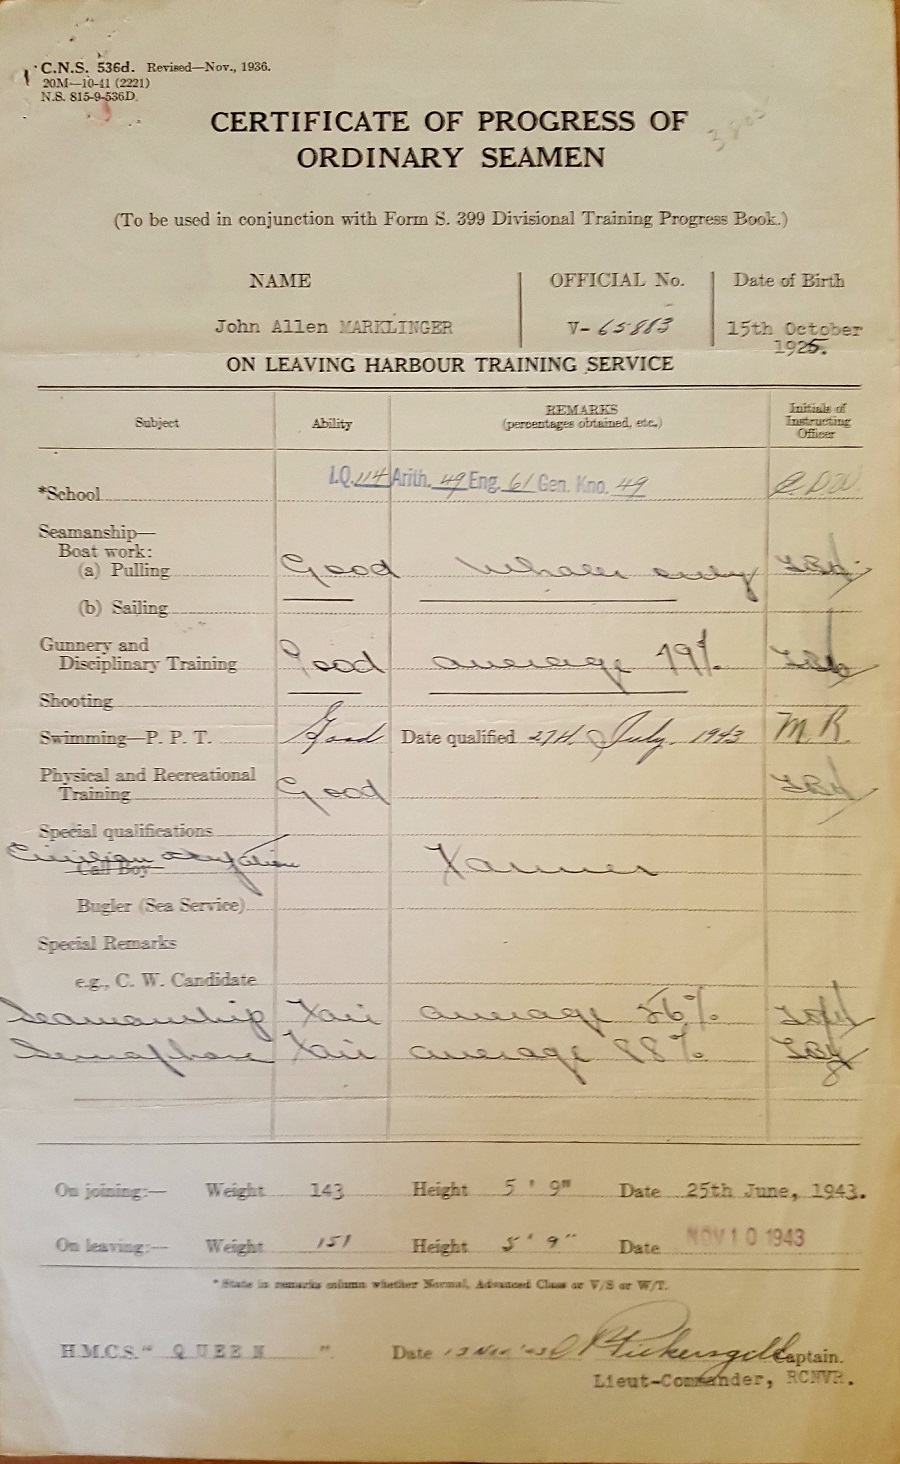 C.N.S. 536d. Revised—Nov., 1936.
20M—10-41 (2221)
N.S. 815-9-536D.
CERTIFICATE OF PROGRESS OF
ORDINARY SEAMEN
(To be used in conjunction with Form S. 399 Divisional Training Progress Book.)
NAME OFFICIAL No. Date of Birth
John Allen MARKLINGER V-65883 15th October
1925.
ON LEAVING HARBOUR TRAINING SERVICE
Subject Ability REMARKS (percentages obtained, etc.) Initials of Instructing Officer
*School I.Q. 114 Arith. 49 Eng. 61 Gen. Kno. 49
Seamanship—
Boat work:
(a) Pulling Good Whaler only
(b) Sailing
Gunnery and
Disciplinary Training Good average 79%
Shooting
Swimming—P. P. T. Good Date qualified 27th July, 1943 M.R.
Physical and Recreational
Training Good
Special qualifications
Civilian occupation Farmer
Call Boy
Bugler (Sea Service)
Special Remarks
e.g., C. W. Candidate
Seamanship Fair average
Semaphore Fair average 88%
On joining:— Weight 143 Height 5' 9" Date 25th June, 1943.
On leaving:— Weight 151 Height 5' 9" Date NOV 10 1943
* State in remarks column whether Normal, Advanced Class or V/S or W/T.
H.M.C.S. "QUEEN". Date Pickersgill Captain.
Lieut-Commander, RCNVR.